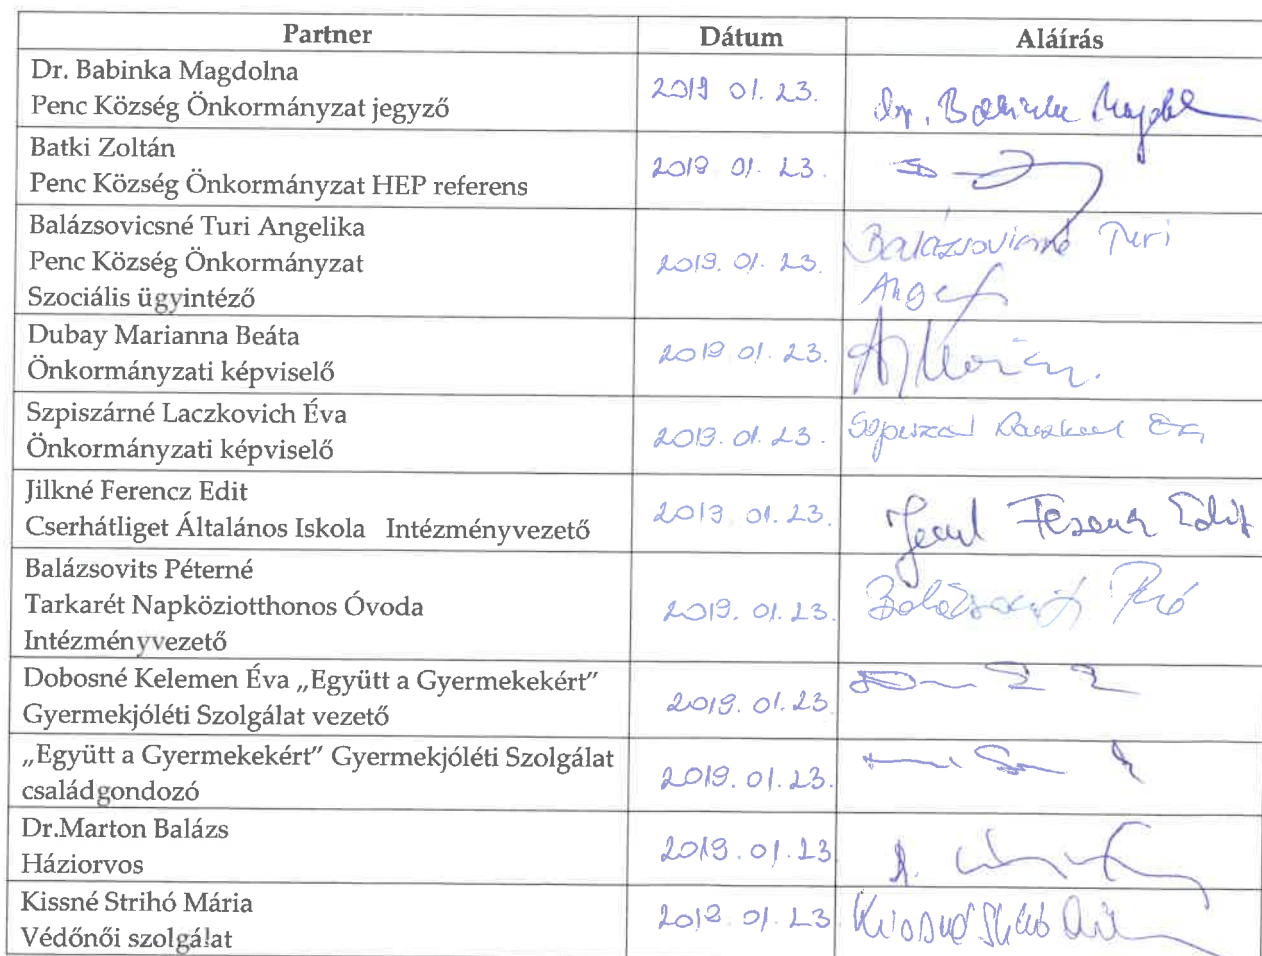 Partner Dátum Aláírás
Dr. Babinka Magdolna
Penc Község Önkormányzat jegyző
2019 01. 23.
Dr. Babinka Magdol
Batki Zoltán
Penc Község Önkormányzat HEP referens
2019 01. 23.
Balázsovicsné Turi Angelika
Penc Község Önkormányzat
Szociális ügyintéző
2019. 01. 23.
Balázsovicsné Turi
Ange
Dubay Marianna Beáta
Önkormányzati képviselő
2019 01. 23.
Szpiszárné Laczkovich Éva
Önkormányzati képviselő
2019. 01. 23.
Jilkné Ferencz Edit
Cserhátliget Általános Iskola Intézményvezető
2019. 01. 23.
Ferencz Edit
Balázsovits Péterné
Tarkarét Napköziotthonos Óvoda
Intézményvezető
2019. 01. 23.
Dobosné Kelemen Éva „Együtt a Gyermekekért”
Gyermekjóléti Szolgálat vezető
2019. 01. 23
„Együtt a Gyermekekért” Gyermekjóléti Szolgálat
családgondozó
2019. 01. 23.
Dr.Marton Balázs
Háziorvos
2019. 01. 23
Kissné Strihó Mária
Védőnői szolgálat
2019. 01. 23
Kissné